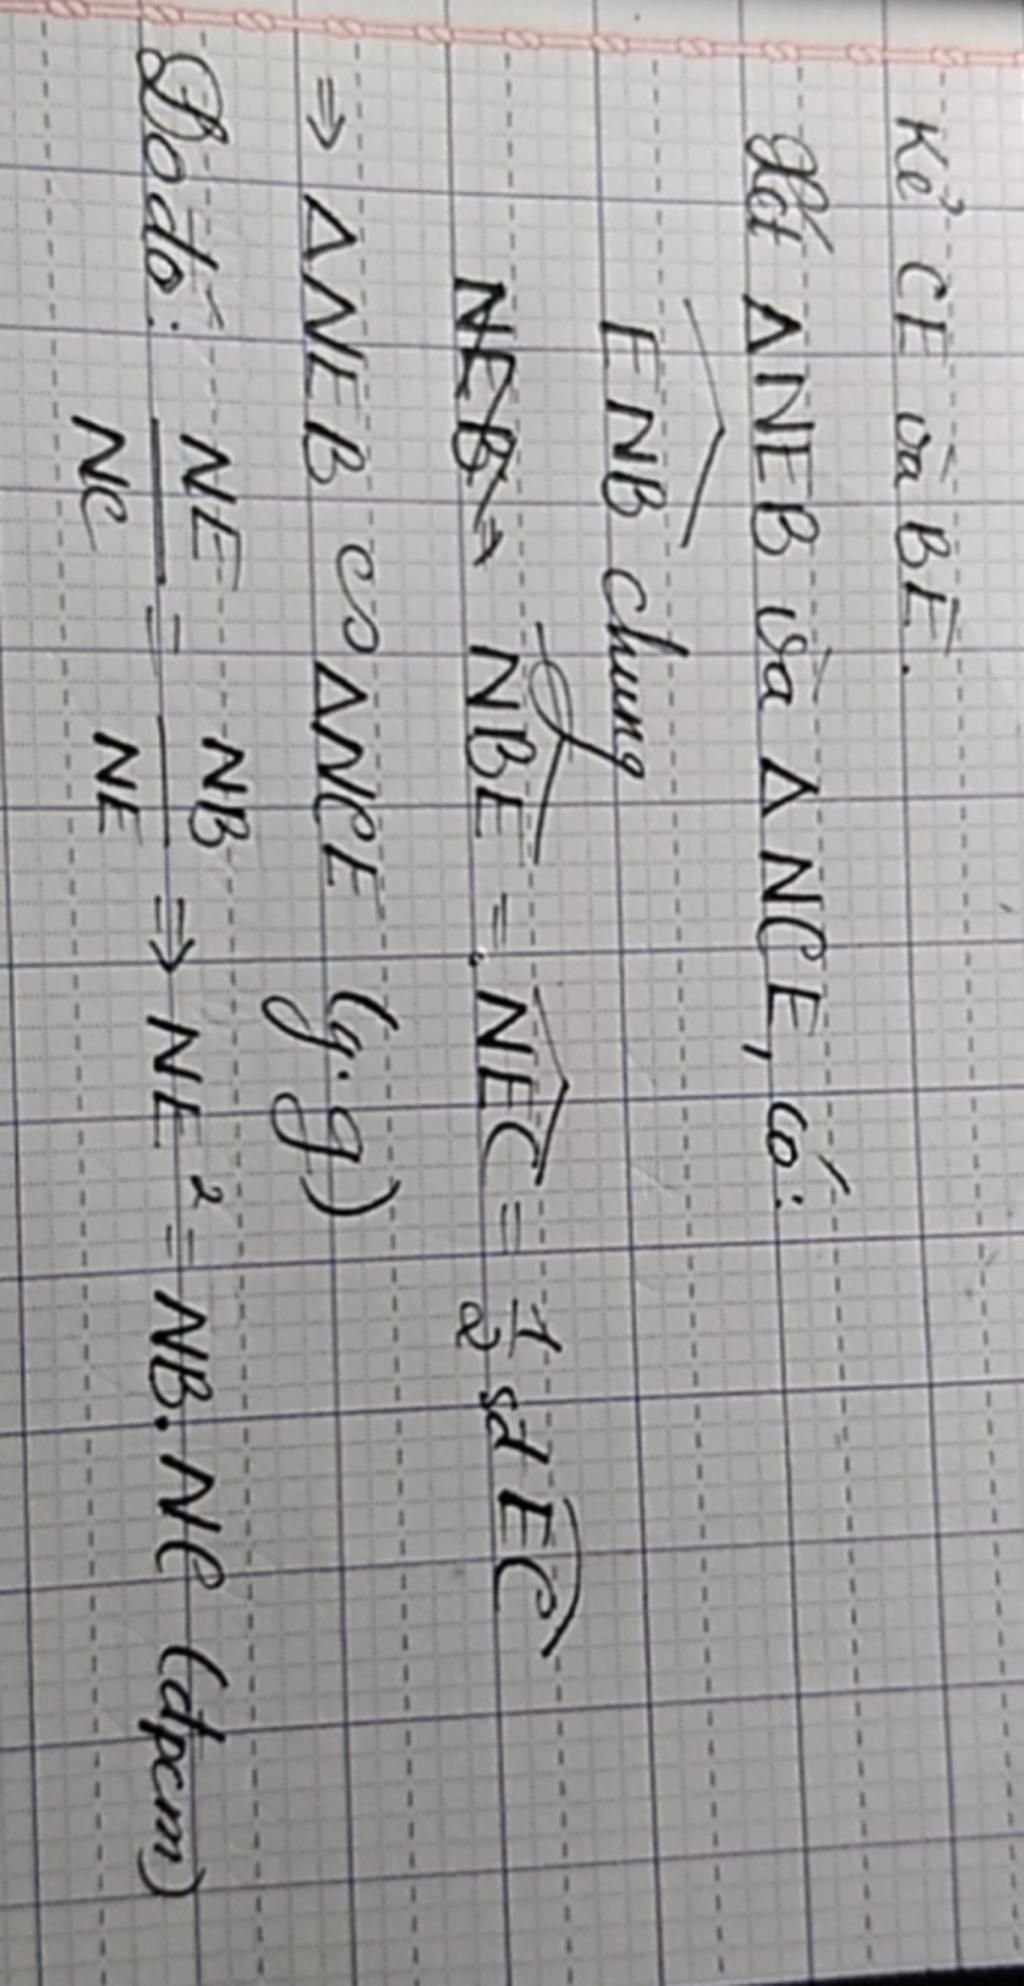 Kẻ CE và BE.
Xét ΔNEB và ΔNCE, có:
ENB chung
NBE = NEC = 1/2 sđ EC
⇒ ΔNEB ∽ ΔNCE (g.g)
Do đó: NE/NC = NB/NE ⇒ NE² = NB.NC (đpcm)